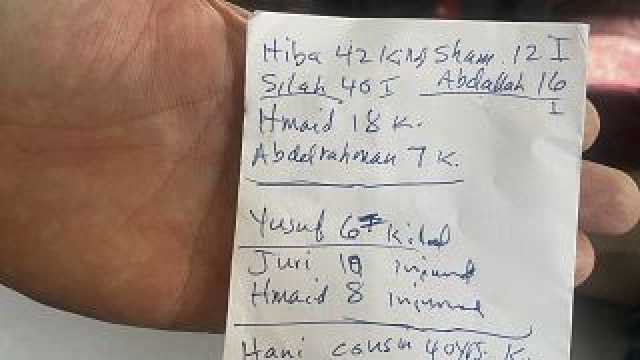 Hiba 42 K Sham 12 I
Silah 40 I Abdallah 16
I
Hmaid 18 K.
Abdelrahman 7 K.
Yusuf 6 Kiled
Juri injured
Hmaid 8 injured
Hani cousin 40 K.